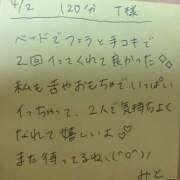 4/2 120分 T様
ベッドでフェラと手コキで
2回イってくれて良かった♡
私も舌やおもちゃでいっぱい
イっちゃって、2人で気持ちよく
なれて嬉しいよ♡
また待ってるね＼(^o^)／
みと